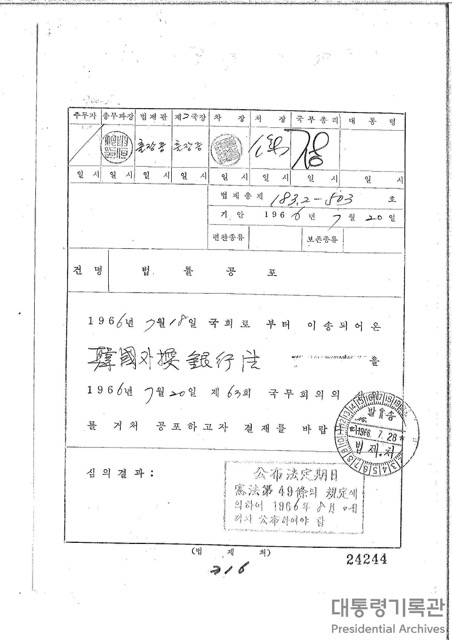 주무자 총무과장 법제관 제2국장 차장 처장 국무총리 대통령
일시 일시 일시 일시 일시 일시 일시 일시
법제총제 183.2-503 호
기안 1966년 7월 20일
편찬종류 보존종류
건명 법률공포
1966년 7월 18일 국회로부터 이송되어온
韓國外換銀行法 을
1966년 7월 20일 제63회 국무회의의
를 거쳐 공포하고자 결재를 바람
발송
1966. 7. 28
법제처
심의결과:
公布法定期日
憲法第49條의 規定에
의하여 1966年 8月
公布하여야 함
(법제처)
24244
316
대통령기록관
Presidential Archives